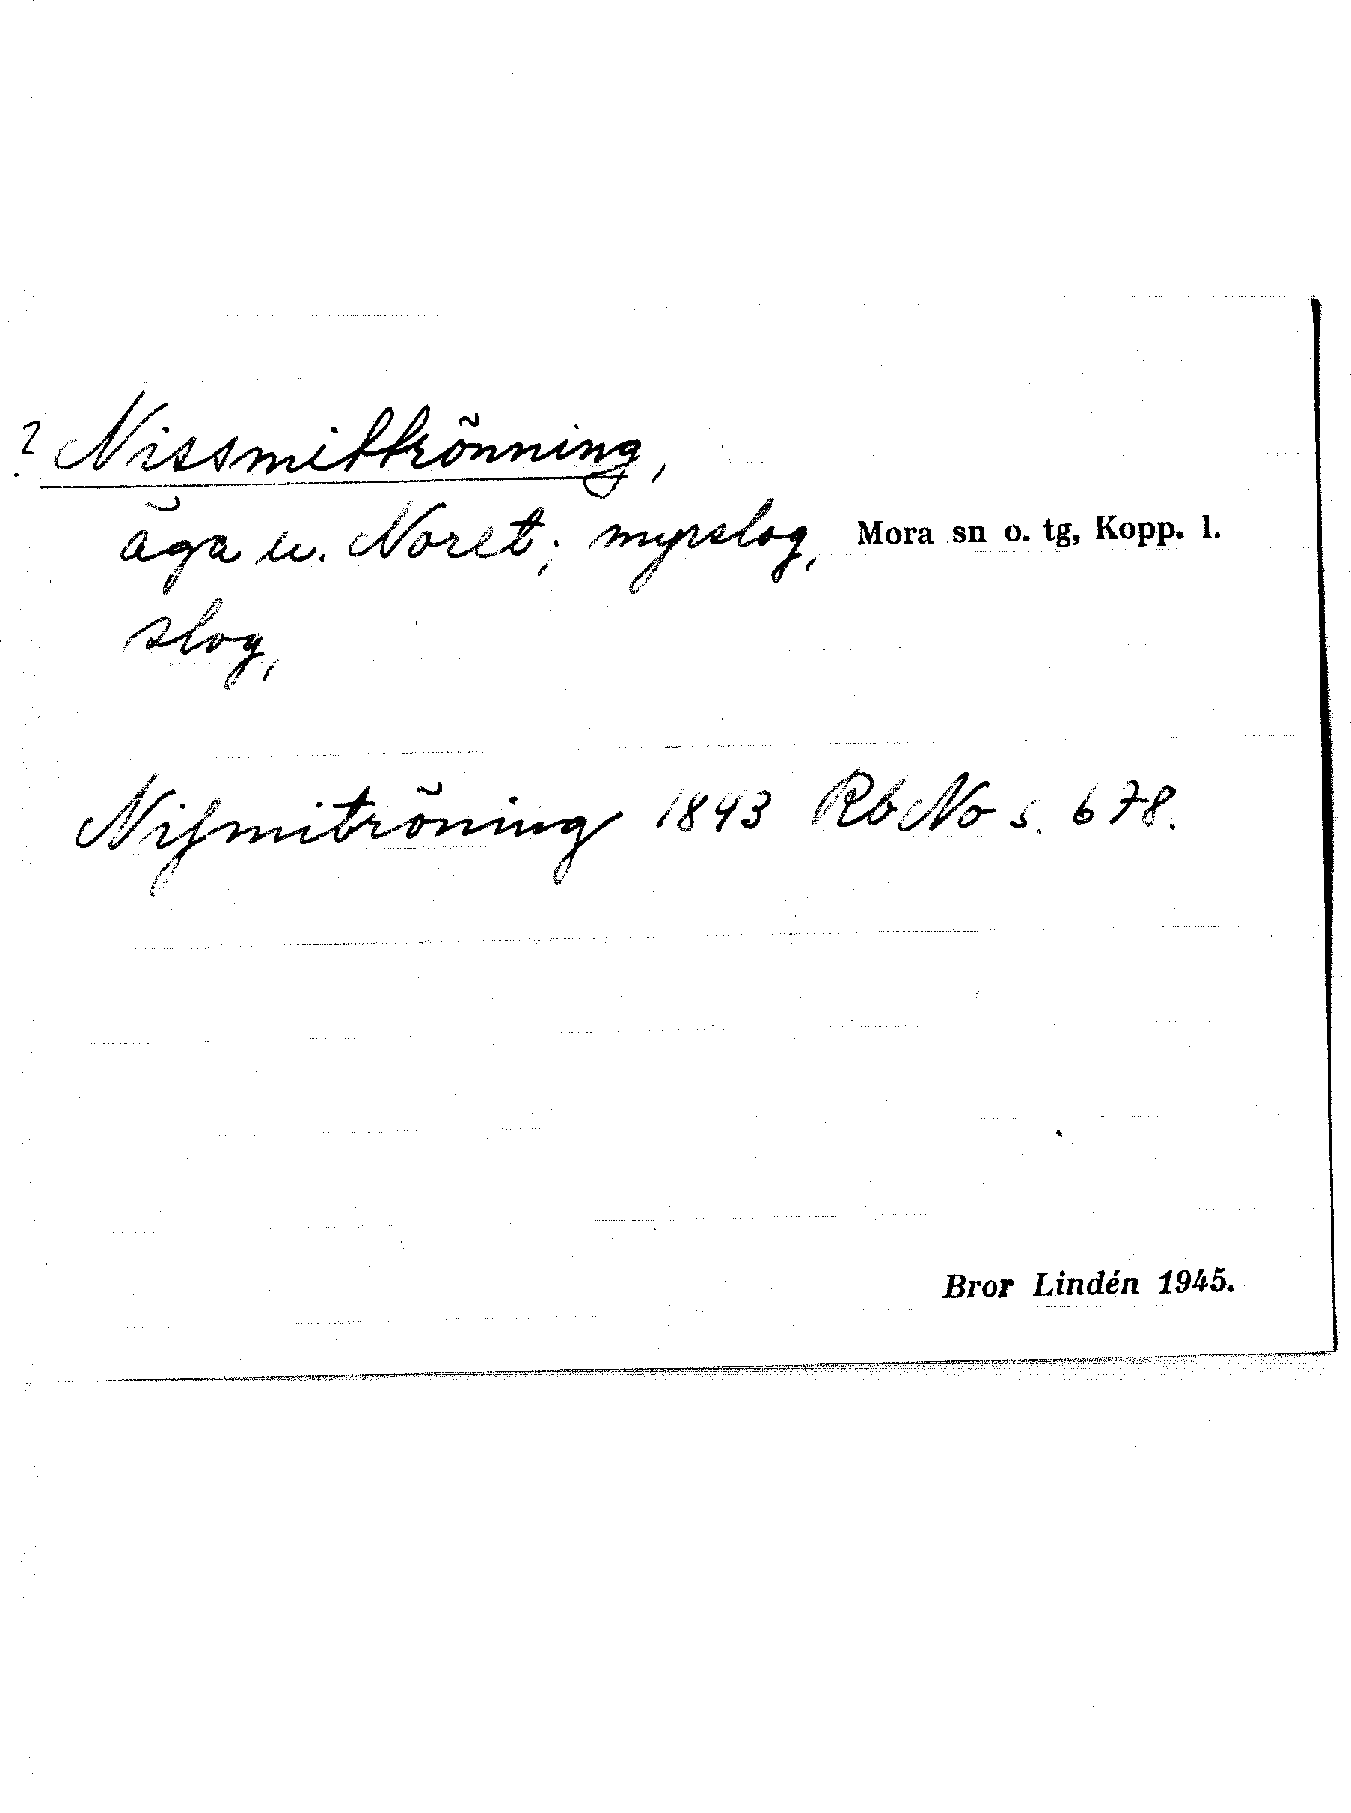 ? Nissmittrönning,
äga u. Noret; myrslog, Mora sn o. tg, Kopp. l.
slog,
Nissmitröning 1843 Rb No s. 678.
Bror Lindén 1945.